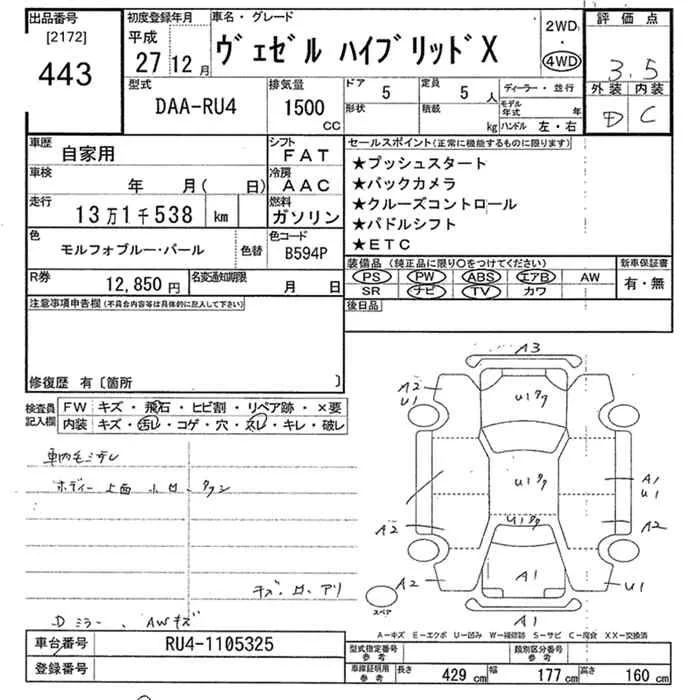 出品番号
[2172]
443
初度登録年月
平成
27 12 月
車名・グレード
ヴェゼル ハイブリッドX
2WD
・
4WD
評価点
3.5
外装 内装
D C
型式
DAA-RU4
排気量
1500
CC
ドア 5
形状
定員 5 人
積載 kg
ディーラー・並行
モデル年式 年
ハンドル 左・右
車歴
自家用
シフト
FAT
車検
年 月( 日)
冷房
AAC
走行
13万1千538 km
燃料
ガソリン
色
モルフォブルー・パール
色替
色コード
B594P
R券
12,850 円
名変通知期限
月 日
セールスポイント(正常に機能するものに限ります)
★プッシュスタート
★バックカメラ
★クルーズコントロール
★パドルシフト
★ETC
装備品 (純正品に限り○をつけてください)
PS PW ABS エアB AW
SR ナビ TV カワ
新車保証書
有・無
後日品
注意事項申告欄(不具合内容等は具体的に記入して下さい)
修復歴 有〔箇所 〕
検査員
記入欄
FW キズ・飛石・ヒビ割・リペア跡・×要
内装 キズ・汚レ・コゲ・穴・スレ・キレ・破レ
ボディー上面
キズ・ アリ
Dミラー、AWキズ
A3
A2
U1
A1
U1
A2
A2
A2
A1
U1
A1
スペア
A−キズ E−エクボ U−凹み W−補修跡 S−サビ C−腐食 XX−交換済
車台番号
RU4-1105325
登録番号
型式指定番号
参考
類別区分番号
参考
車庫証明用
参考
長さ 429 cm 幅 177 cm 高さ 160 cm